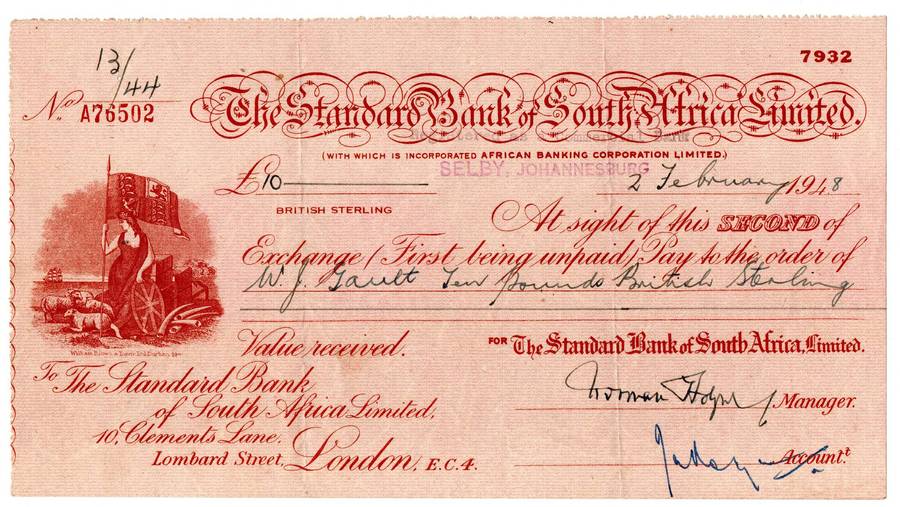 7932
13/44
No. A76502
The Standard Bank of South Africa Limited.
(WITH WHICH IS INCORPORATED AFRICAN BANKING CORPORATION LIMITED.)
SELBY, JOHANNESBURG
£10 2 February 1948
BRITISH STERLING
At sight of this SECOND of
Exchange (First being unpaid) Pay to the order of
W. J. Gault Ten pounds British Sterling
Value received.
FOR The Standard Bank of South Africa, Limited.
To The Standard Bank
of South Africa Limited,
10, Clements Lane,
Lombard Street, London, E.C.4.
Norman Manager.
Account.t